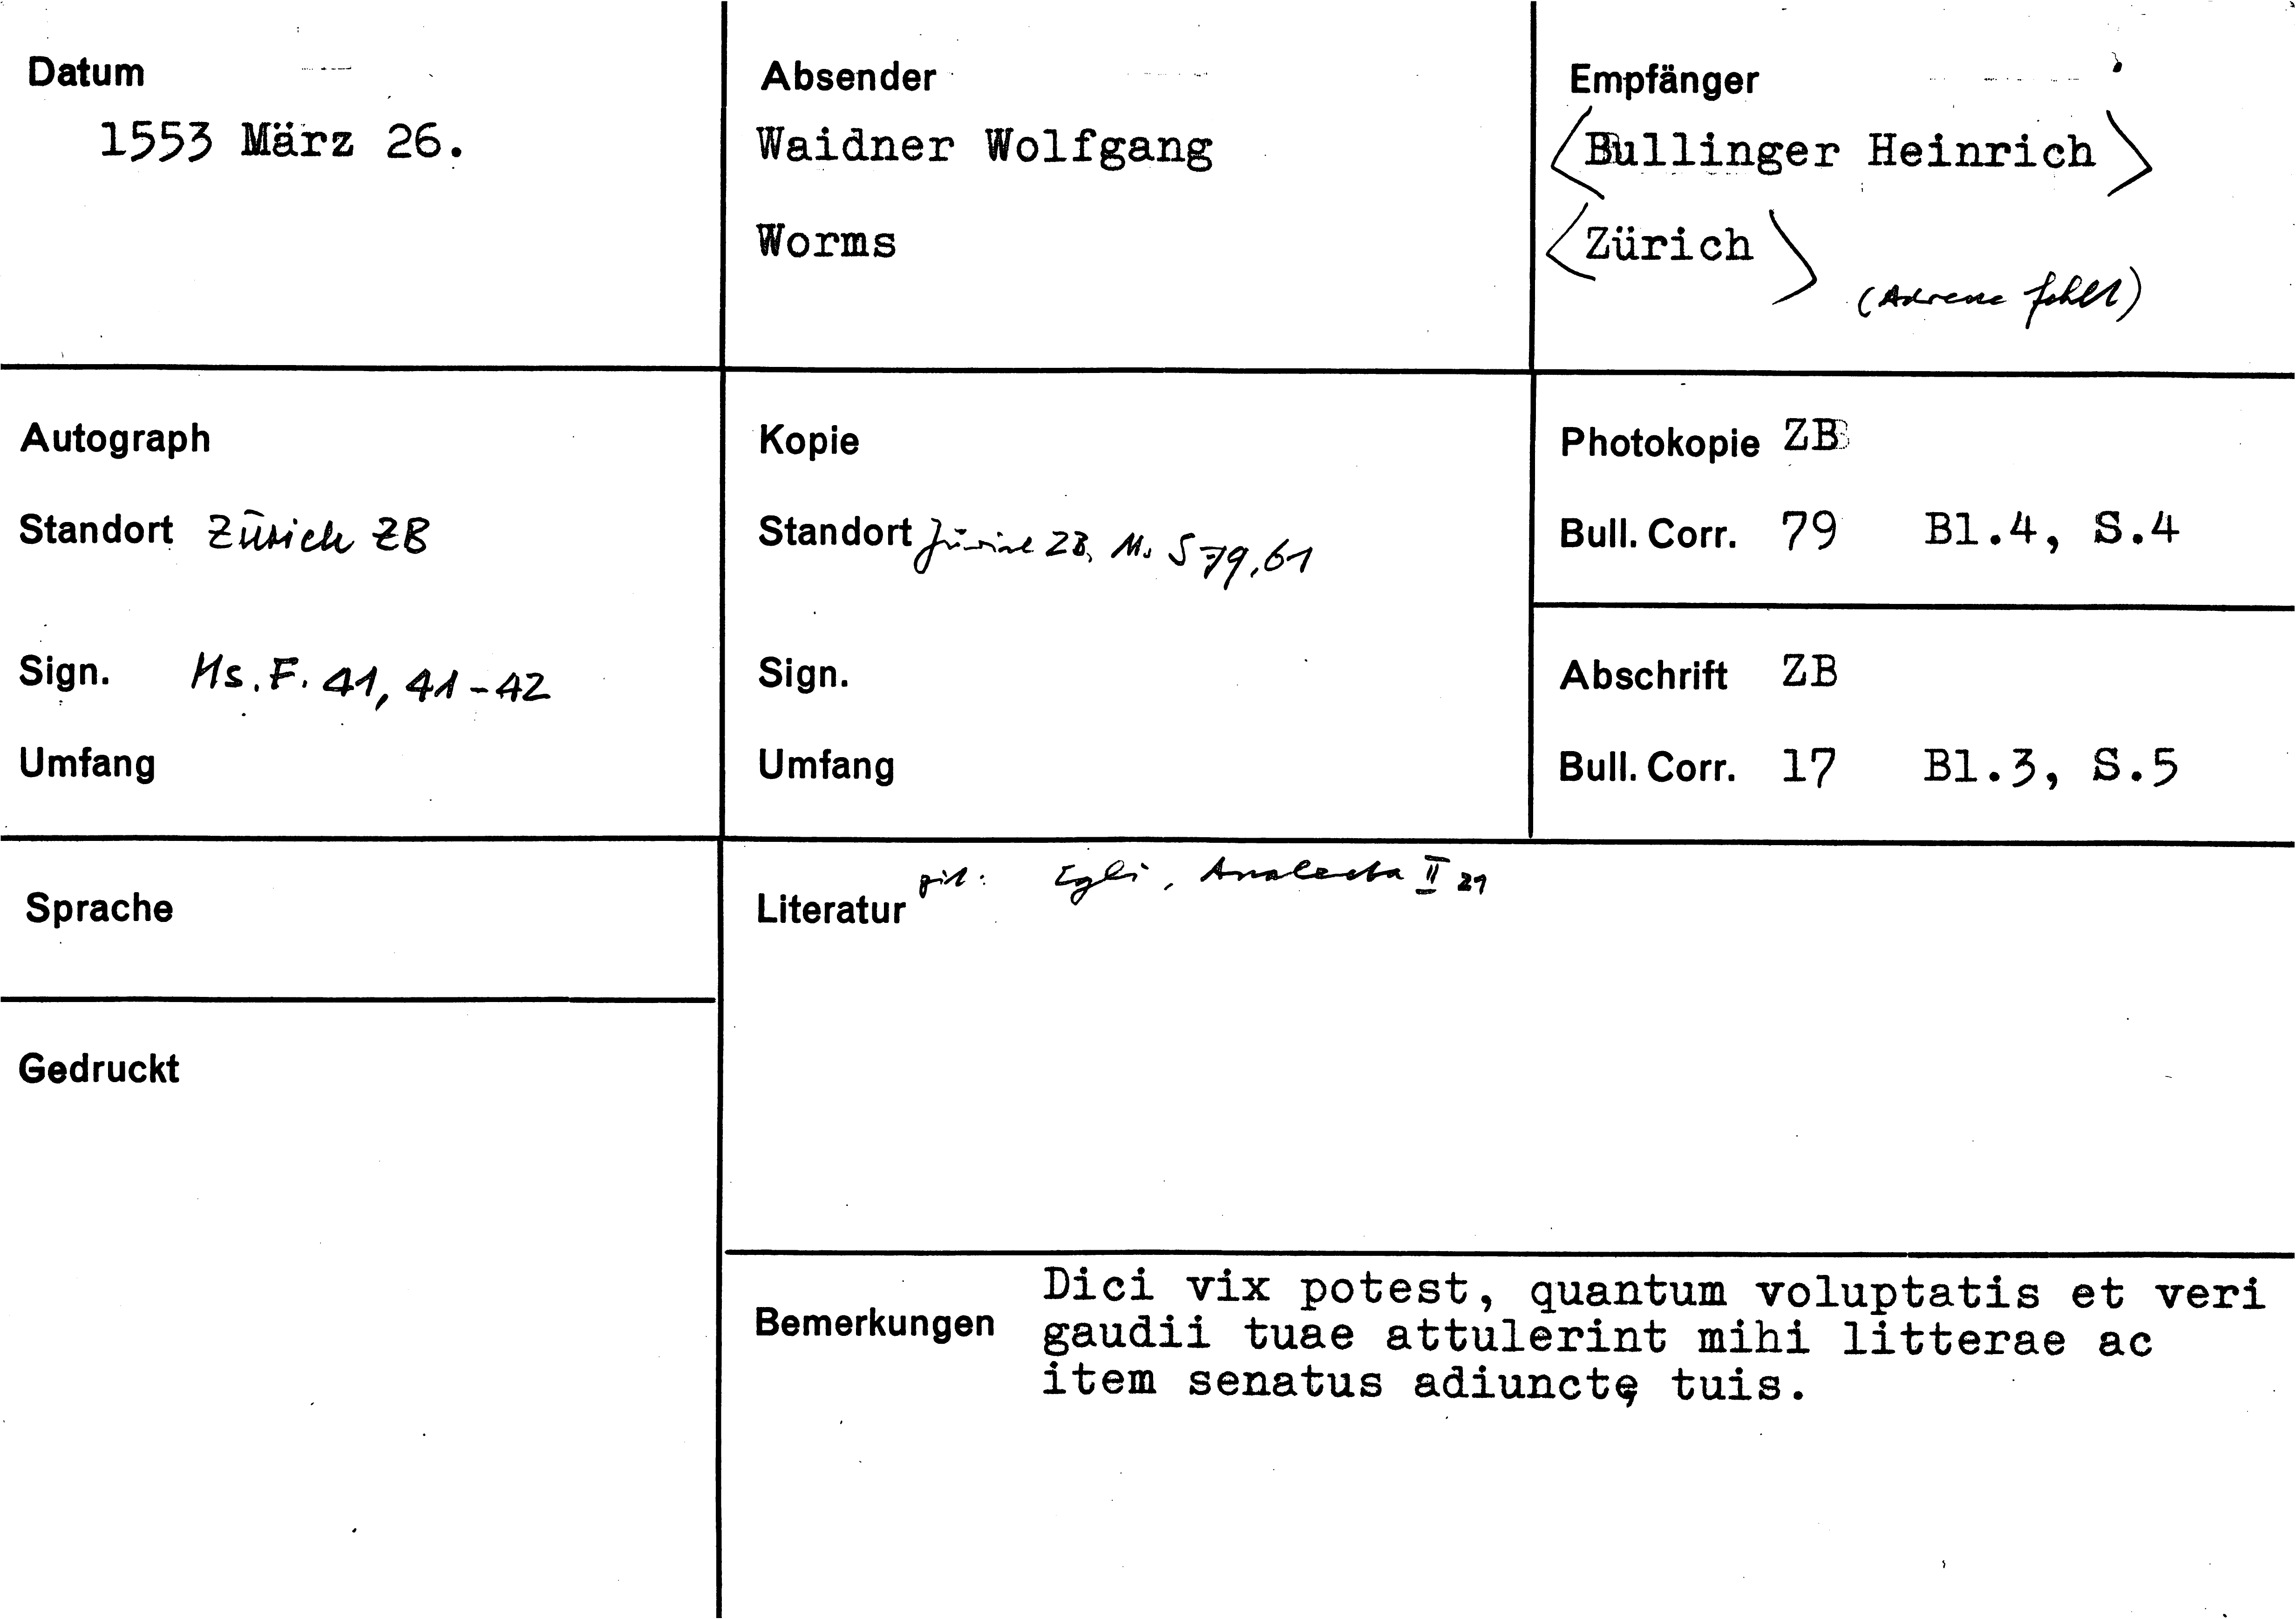 Datum
1553 März 26.
Absender
Waidner Wolfgang
Worms
Empfänger
<Bullinger Heinrich>
<Zürich>
(Adresse fehlt)
Autograph
Standort Zürich ZB
Sign. Hs. F. 41, 41-42
Umfang
Kopie
Standort Zürich ZB, Ms S 79, 61
Sign.
Umfang
Photokopie ZB
Bull. Corr. 79 Bl.4, S.4
Abschrift ZB
Bull. Corr. 17 Bl.3, S.5
Sprache
Gedruckt
Literatur zit: Egli, Analecta II 21
Bemerkungen
Dici vix potest, quantum voluptatis et veri
gaudii tuae attulerint mihi litterae ac
item senatus adiunctę tuis.